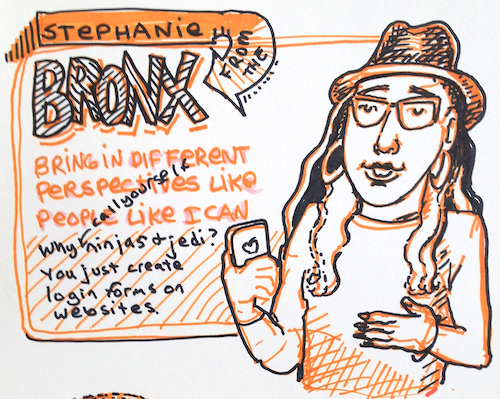 STEPHANIE
FROM THE
BRONX
BRING IN DIFFERENT
PERSPECTIVES LIKE
PEOPLE LIKE I CAN
Why call yourself ninjas & jedi?
You just create
login forms on
websites.